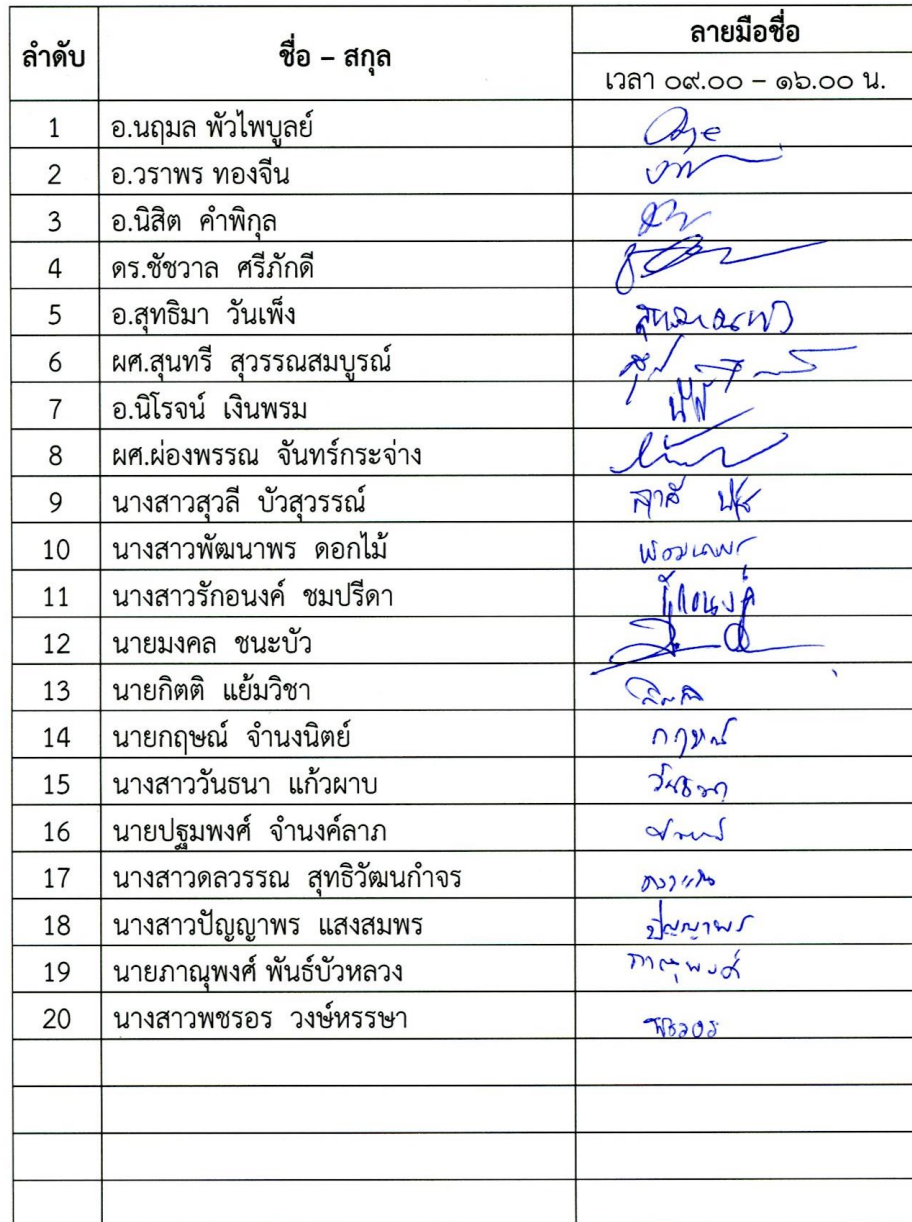 ลำดับ ชื่อ – สกุล ลายมือชื่อ
เวลา ๐๙.๐๐ – ๑๖.๐๐ น.
1 อ.นฤมล พัวไพบูลย์
2 อ.วราพร ทองจีน
3 อ.นิสิต คำพิกุล
4 ดร.ชัชวาล ศรีภักดี
5 อ.สุทธิมา วันเพ็ง
6 ผศ.สุนทรี สุวรรณสมบูรณ์
7 อ.นิโรจน์ เงินพรม
8 ผศ.ผ่องพรรณ จันทร์กระจ่าง
9 นางสาวสุวลี บัวสุวรรณ์
10 นางสาวพัฒนาพร ดอกไม้
11 นางสาวรักอนงค์ ชมปรีดา รักอนงค์
12 นายมงคล ชนะบัว
13 นายกิตติ แย้มวิชา
14 นายกฤษณ์ จำนงนิตย์ กฤษณ์
15 นางสาววันธนา แก้วผาบ วันธนา
16 นายปฐมพงศ์ จำนงค์ลาภ
17 นางสาวดลวรรณ สุทธิวัฒนกำจร
18 นางสาวปัญญาพร แสงสมพร ปัญญาพร
19 นายภาณุพงศ์ พันธ์บัวหลวง ภาณุพงศ์
20 นางสาวพชรอร วงษ์หรรษา พชรอร